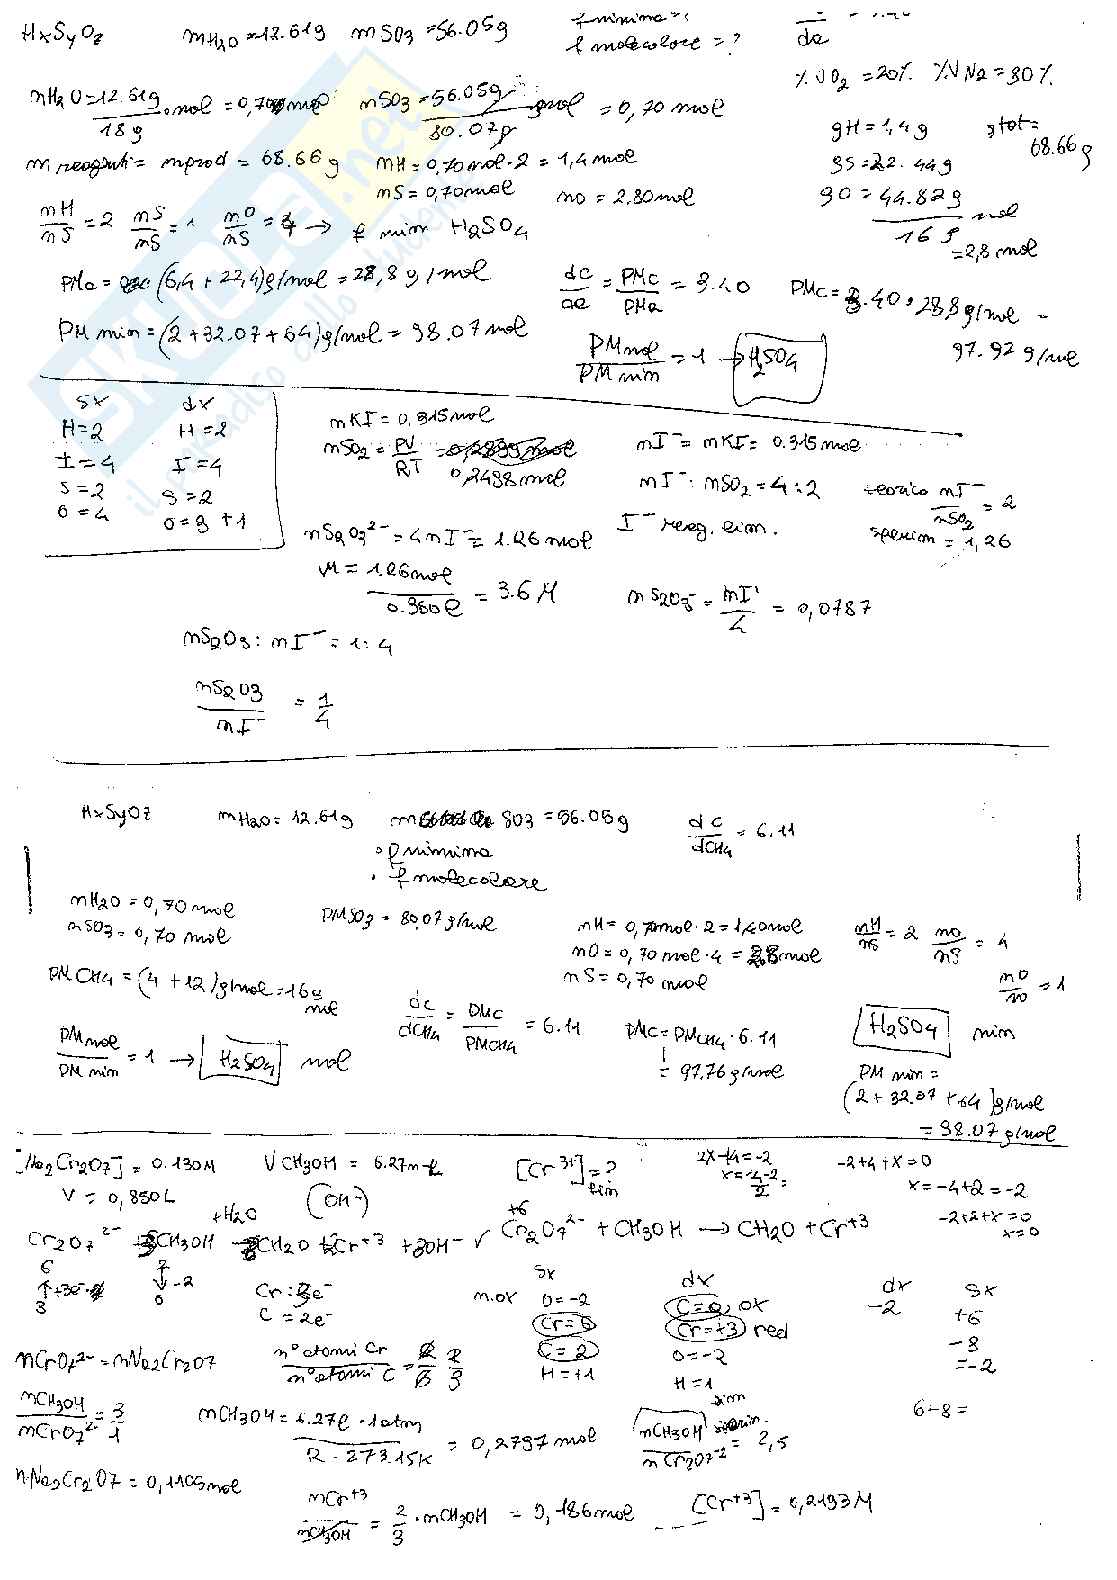 HxSyOz mH2O = 12.61g mSO3 = 56.05g f minima = ?
f molecolare = ?
da
%V O2 = 20% %V N2 = 80%
nH2O = 12.61g mol = 0,70 mol nSO3 = 56.05g mol = 0,70 mol
18 g 80.07g
gH = 1,4 g gtot = 68.66 g
gS = 22.44g
m reagenti = m prod = 68.66 g nH = 0,70mol·2 = 1,4mol
nS = 0,70mol nO = 2,80mol
gO = 44.82g mol
16 g = 2,8 mol
nH/nS = 2 nS/nS = 1 nO/nS = 4 → f min H2SO4
PMa = (6,4 + 22,4)g/mol = 28,8 g/mol dc/da = PMc/PMa = 3.40 PMc = 3.40 · 28,8g/mol =
97.92 g/mol
PM min = (2+32.07+64)g/mol = 98.07 mol
PM mol/PM min = 1 → H2SO4
SX dx
H=2 H=2
I=4 I=4
S=2 S=2
O=4 O=3+1
nKI = 0,315mol
nSO2 = PV/RT = 0,2498mol
nI⁻ = nKI = 0.315mol
nI⁻ : nSO2 = 4:2 teorico nI⁻/nSO2 = 2
I⁻ reag. lim. sperim = 1,26
nS2O3²⁻ = 4nI⁻ = 1.26 mol
M = 1,26mol/0.350l = 3.6 M nS2O3⁻ = nI⁻/4 = 0,0787
nS2O3 : nI⁻ = 1:4
nS2O3/nI⁻ = 1/4
HxSyOz mH2O = 12.61g m SO3 = 56.05g dc/dCH4 = 6.11
• f minima
• f molecolare
nH2O = 0,70 mol
nSO3 = 0,70 mol
PMSO3 = 80,07g/mol
nH = 0,70mol·2 = 1,40mol
nO = 0,70 mol·4 = 2.8mol
nS = 0,70 mol
nH/nS = 2 nO/nS = 4
nO/nO = 1
PM CH4 = (4+12)g/mol = 16 g/mol
dc/dCH4 = PMc/PMCH4 = 6.11 PMc = PMCH4 · 6.11
= 97.76 g/mol
H2SO4 min
PM mol/PM min = 1 → H2SO4 mol
PM min =
(2+32.07+64)g/mol
= 98.07 g/mol
[Na2Cr2O7] = 0.130M V CH3OH = 6.27 [Cr³⁺] = ?
fin
2x-14=-2
-2+4+x=0
x=-4+2=-2
V = 0,850L (OH⁻)
-2+2+x=0
x=0
+H2O
Cr2O7²⁻ + 3CH3OH → 3CH2O + 2Cr⁺³ + OH⁻ ✓ Cr2O7²⁻ + CH3OH → CH2O + Cr⁺³
+6
6
3
-2
0
Cr: 3e⁻
C = 2e⁻
n.ox
Sx
O=-2
Cr=6
C=2
H=+1
dx
C=0, ox
Cr=+3 red
O=-2
H=1
dx
-2
Sx
+6
-8
=-2
6-8=
nCrO7²⁻ = nNa2Cr2O7 n° atomi Cr/n° atomi C = 2/3
nCH3OH/nCrO7²⁻ = 3/1
nCH3OH = 6.27l · 1atm/R · 273.15K = 0,2797 mol
lim
nCH3OH/nCr2O7⁻² = 2,5
nNa2Cr2O7 = 0,1105mol
nCr⁺³/nCH3OH = 2/3 · nCH3OH = 0,186mol [Cr⁺³] = 0,2193M